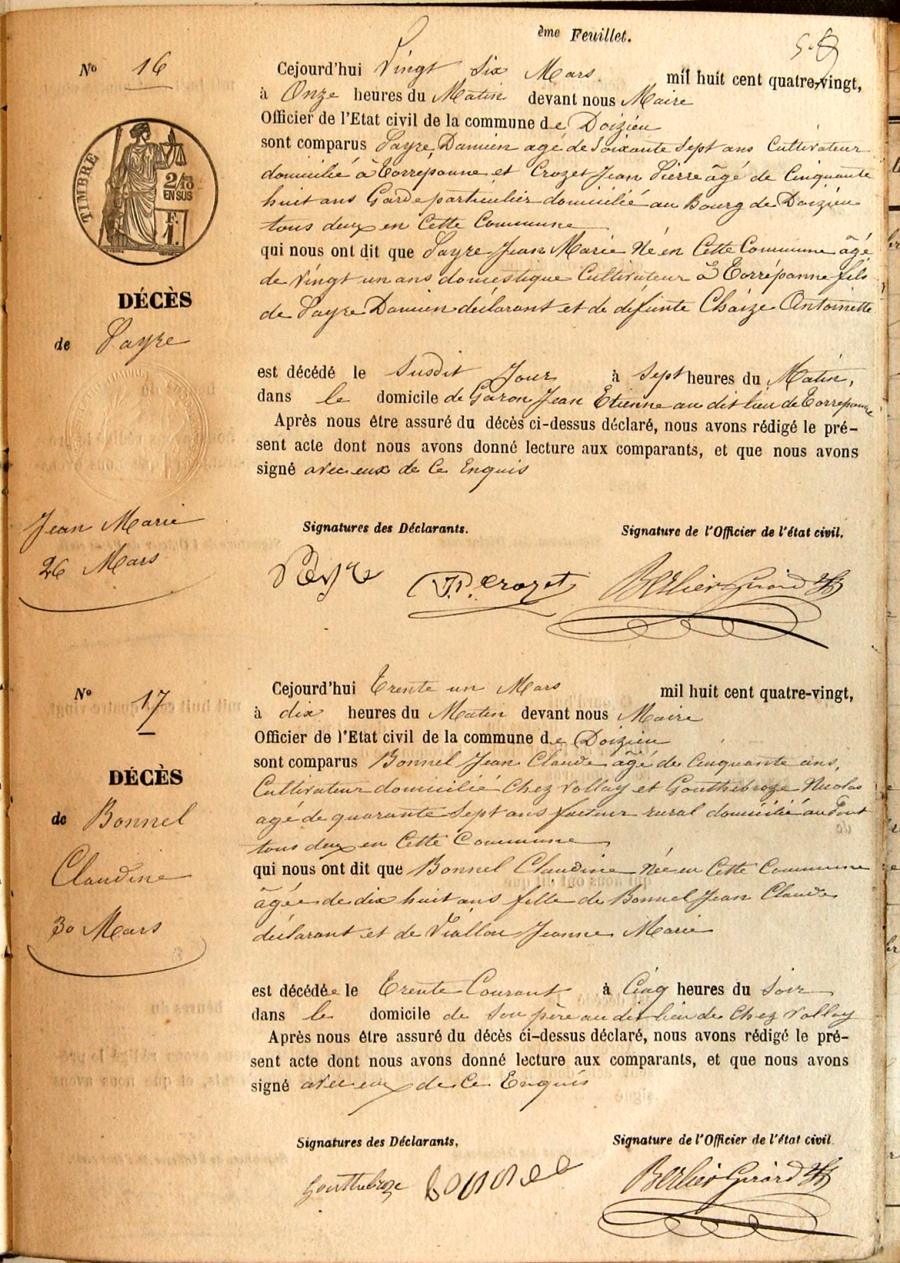 ème Feuillet.
58
No 16
Cejourd'hui Vingt Six Mars mil huit cent quatre-vingt,
à Onze heures du Matin devant nous Maire
Officier de l'Etat civil de la commune de Doizieu
sont comparus Payre Damien agé de Soixante Sept ans Cultivateur
domicilié à Correpanne et Crozet Jean Pierre âgé de Cinquante
huit ans Garde particulier domicilié au Bourg de Doizieu
tous deux en Cette Commune
qui nous ont dit que Payre Jean Marie Né en Cette Commune âgé
de Vingt un ans domestique Cultivateur à Correpanne fils
de Payre Damien déclarant et de défunte Chaize Antoinette
TIMBRE
2/10
EN SUS
F.
1.
DÉCÈS
de Payre
Jean Marie
26 Mars
est décédé le Susdit Jour à Sept heures du Matin,
dans le domicile de Garon Jean Etienne au dit lieu de Correpanne
Après nous être assuré du décès ci-dessus déclaré, nous avons rédigé le pré-
sent acte dont nous avons donné lecture aux comparants, et que nous avons
signé avec eux de Ce Enquis
Signatures des Déclarants. Signature de l'Officier de l'état civil.
Payre J.P. Crozet Berlier Girard
No 17
Cejourd'hui Trente un Mars mil huit cent quatre-vingt,
à dix heures du Matin devant nous Maire
Officier de l'Etat civil de la commune de Doizieu
sont comparus Bonnel Jean Claude âgé de Cinquante ans,
Cultivateur domicilié Chez Vollay et Gouttebroze Nicolas
agé de quarante Sept ans facteur rural domicilié au Pont
tous deux en Cette Commune
qui nous ont dit que Bonnel Claudine Née en Cette Commune
âgée de dix huit ans fille de Bonnel Jean Claude
déclarant et de Viallon Jeanne Marie
DÉCÈS
de Bonnel
Claudine
30 Mars
est décédée le Trente Courant à Cinq heures du Soir
dans le domicile de Son père au dit lieu de Chez Vollay
Après nous être assuré du décès ci-dessus déclaré, nous avons rédigé le pré-
sent acte dont nous avons donné lecture aux comparants, et que nous avons
signé avec eux de Ce Enquis
Signatures des Déclarants, Signature de l'Officier de l'état civil
Gouttebroze Bonnel Berlier Girard